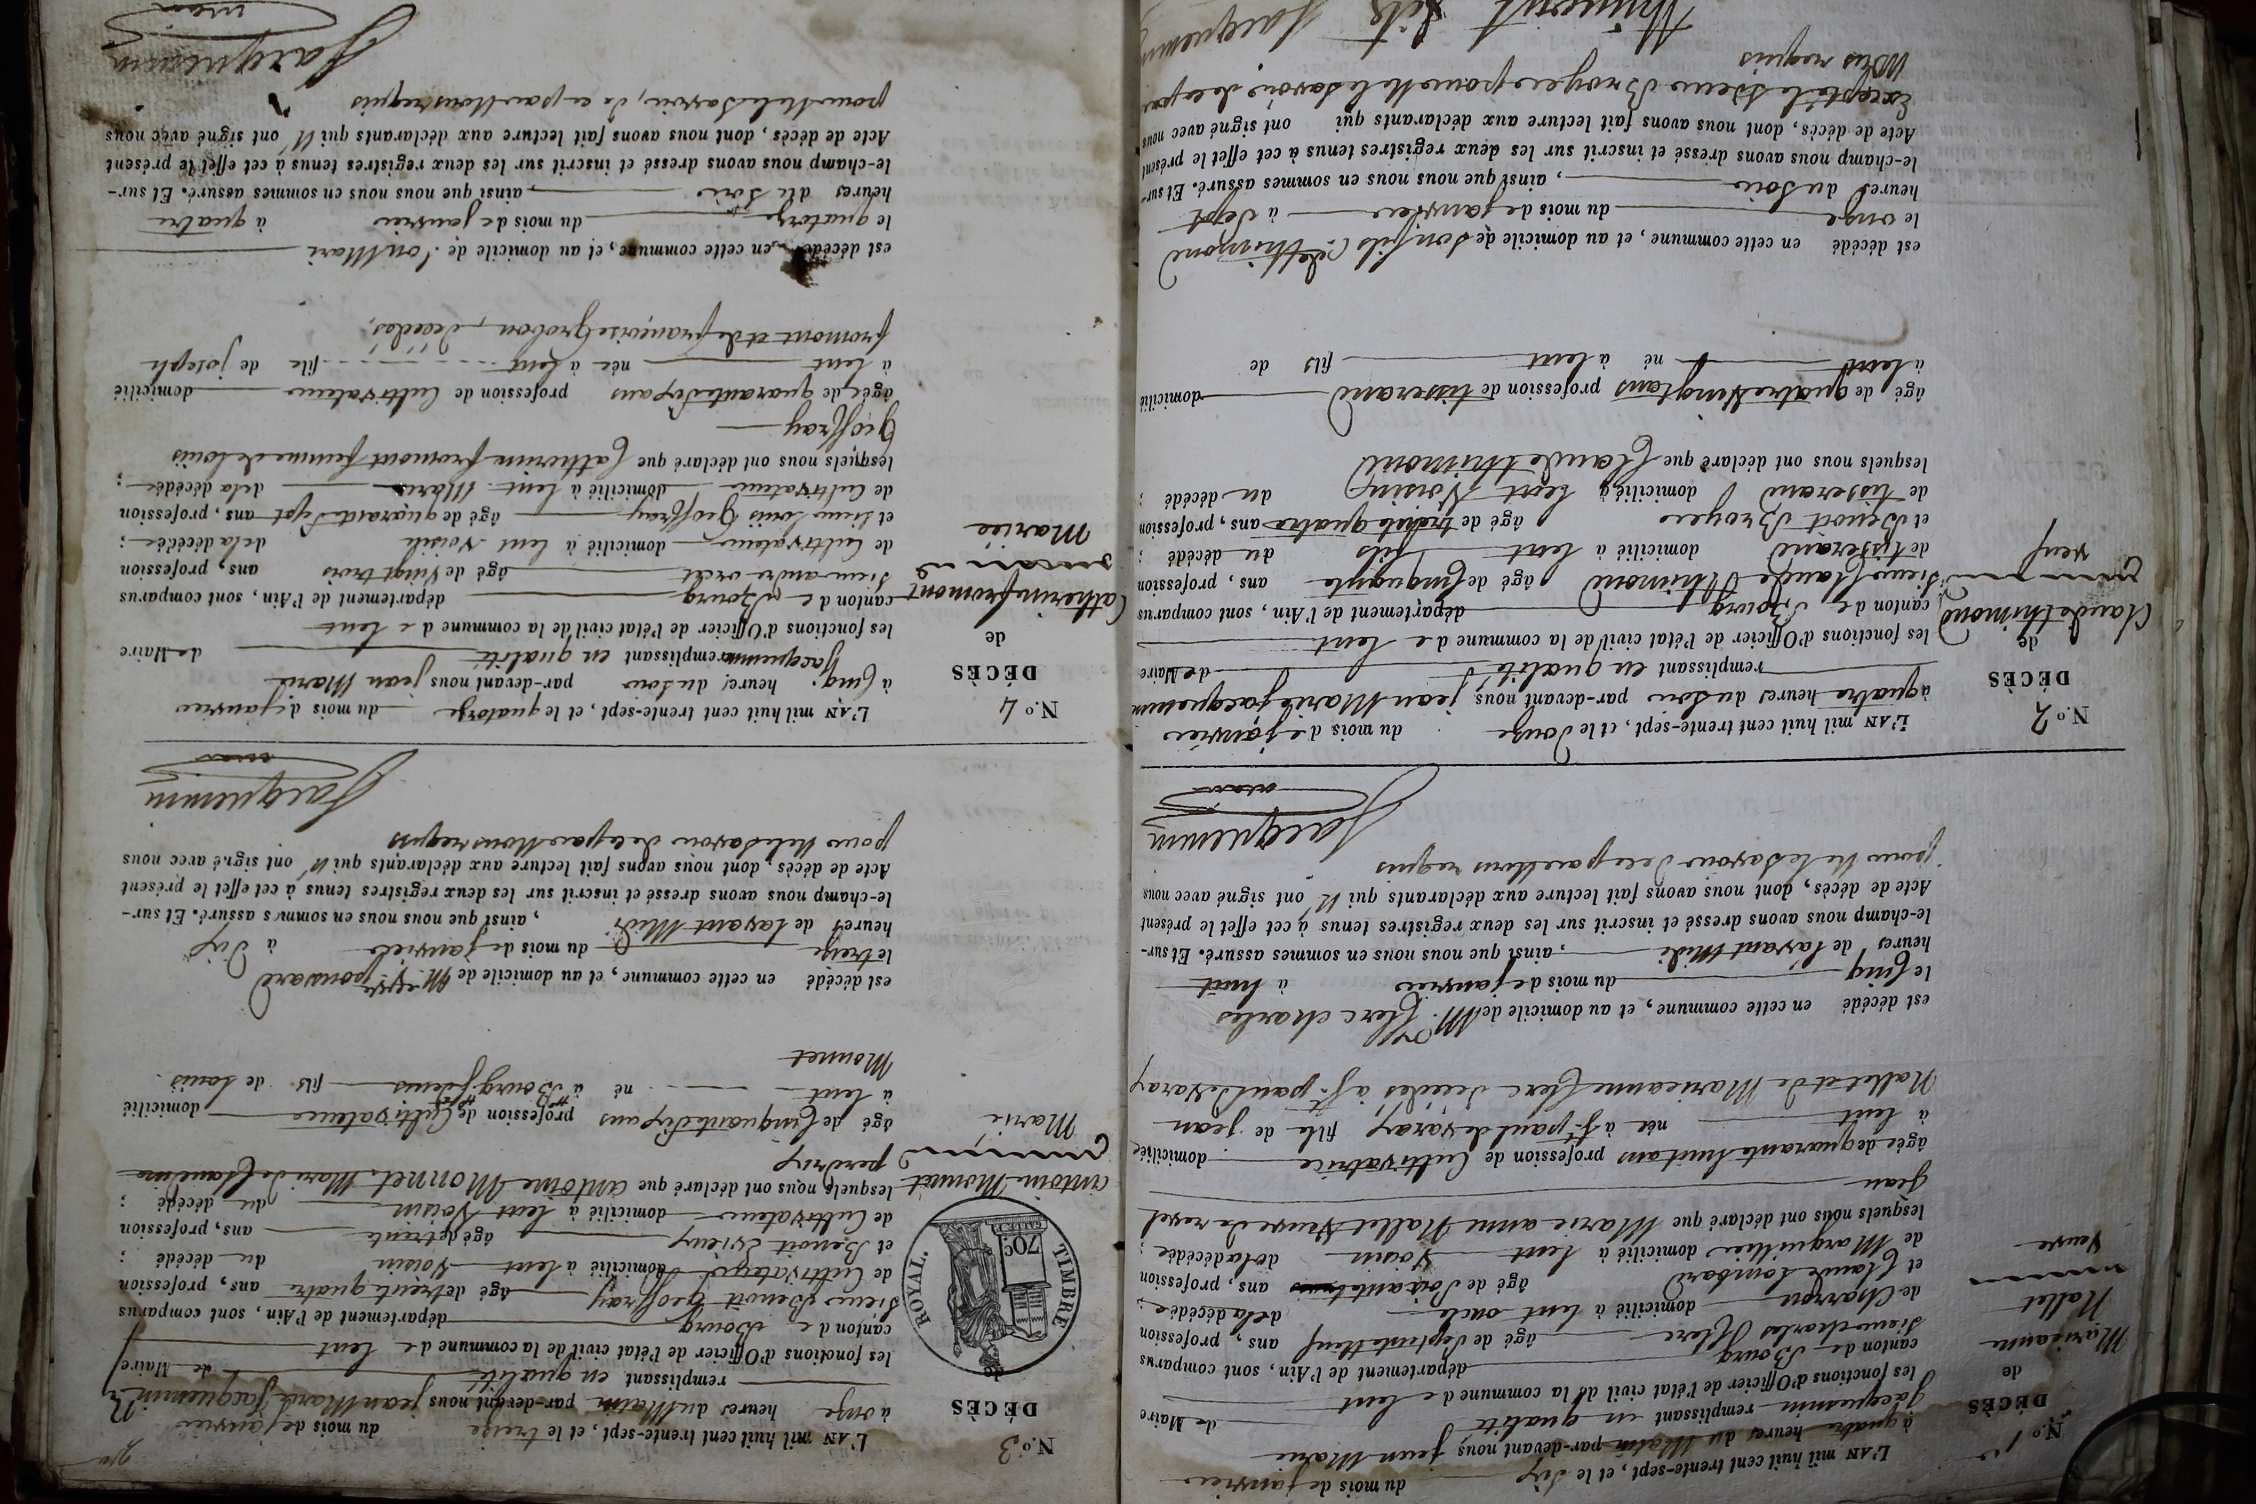 N.o 1er
DÉCÈS
de
Marieanne
Nallet
veuve
L'AN mil huit cent trente-sept, et le six du mois de janvier
à quatre heures du Matin par-devant nous jean Marie
Jacquemin remplissant en qualité de Maire
les fonctions d'Officier de l'état civil de la commune de lent
canton de Bourg département de l'Ain, sont comparus
Sieur charles Clerc âgé de Septante Neuf ans, profession
de Charron domicilié à lent oncle de la décédée ;
et Claude Lombard âgé de Soixante ans, profession
de Marguillier domicilié à lent Voisin de la décédée ;
lesquels nous ont déclaré que Marie anne Nallet Veuve de revel
jean
âgée de quarante huit ans profession de Cultivatrice domiciliée
à lent née à St. paul de varax fille de jean
Nallet et de Marieanne Clerc décédés à St. paul de Varax
est décédé en cette commune, et au domicile de M. Clerc charles
le Cinq du mois de janvier à huit
heures de l'avant Midi, ainsi que nous nous en sommes assuré. Et sur-
le-champ nous avons dressé et inscrit sur les deux registres tenus à cet effet le présent
Acte de décès, dont nous avons fait lecture aux déclarants qui N' ont signé avec nous
pour Ne le Savoir de ce par Nous requis
Jacquemin
maire
N.o 2
DÉCÈS
de
Claude thimond
veuf
L'AN mil huit cent trente-sept, et le Douze du mois de janvier
à quatre heures du Soir par-devant nous jean Marie Jacquemin
remplissant en qualité de Maire
les fonctions d'Officier de l'état civil de la commune de lent
canton de Bourg département de l'Ain, sont comparus
Sieur Claude Thimond âgé de Cinquante ans, profession
de tisserand domicilié à lent fils du décédé ;
et Benoit Broyer âgé de trente quatre ans, profession
de tisserand domicilié à lent Voisin du décédé ;
lesquels nous ont déclaré que Claude thimond
âgé de quatre Vingt ans profession de tisserand domicilié
à lent né à lent fils de
est décédé en cette commune, et au domicile de Son fils Cde. thimond
le onze du mois de janvier à Sept
heures du Soir, ainsi que nous nous en sommes assuré. Et sur-
le-champ nous avons dressé et inscrit sur les deux registres tenus à cet effet le présent
Acte de décès, dont nous avons fait lecture aux déclarants qui ont signé avec nous
Excepté le Sieur Broyer pour Ne le Savoir de ce par
Nous requis
Thimont fils Jacquemin
N.o 3
DÉCÈS
de
antoine Monnet
Marie
TIMBRE ROYAL.
70c
L'AN mil huit cent trente-sept, et le treize du mois de janvier
à onze heures du Matin par-devant nous jean Marie Jacquemin
remplissant en qualité de Maire
les fonctions d'Officier de l'état civil de la commune de lent
canton de Bourg département de l'Ain, sont comparus
Sieur Benoit Geoffray âgé de trente quatre ans, profession
de Cultivateur domicilié à lent Voisin du décédé ;
et Benoit âgé de trente ans, profession
de Cultivateur domicilié à lent Voisin du décédé ;
lesquels nous ont déclaré que antoine Monnet Mari de Claudine
perdrix
âgé de Cinquante Six ans profession de Cultivateur domicilié
à lent né à Bourg fils de Louis
Monnet
est décédé en cette commune, et au domicile de ponsard
le treize du mois de janvier à Dix
heures de l'avant Midi, ainsi que nous nous en sommes assuré. Et sur-
le-champ nous avons dressé et inscrit sur les deux registres tenus à cet effet le présent
Acte de décès, dont nous avons fait lecture aux déclarants qui N' ont signé avec nous
pour Ne le Savoir de ce par Nous requis
Jacquemin
maire
N.o 4
DÉCÈS
de
Catherine fromont
Mariée
L'AN mil huit cent trente-sept, et le quatorze du mois de janvier
à Cinq heures du Soir par-devant nous jean Marie
Jacquemin remplissant en qualité de Maire
les fonctions d'Officier de l'état civil de la commune de lent
canton de Bourg département de l'Ain, sont comparus
Sieur andre âgé de Vingt trois ans, profession
de Cultivateur domicilié à lent Voisin de la décédée ;
et Sieur Louis Geoffray âgé de quarante Sept ans, profession
de Cultivateur domicilié à lent Mari de la décédée ;
lesquels nous ont déclaré que Catherine fromont femme de Louis
Geoffray
âgée de quarante Six ans profession de Cultivateur domicilié
à lent née à lent fille de joseph
fromont et de françoise Grobon, Décédés,
est décédée en cette commune, et au domicile de Son Mari
le quatorze du mois de janvier à quatre
heures du Soir, ainsi que nous nous en sommes assuré. Et sur-
le-champ nous avons dressé et inscrit sur les deux registres tenus à cet effet le présent
Acte de décès, dont nous avons fait lecture aux déclarants qui N' ont signé avec nous
pour Ne le Savoir, de ce par Nous requis
Jacquemin
maire